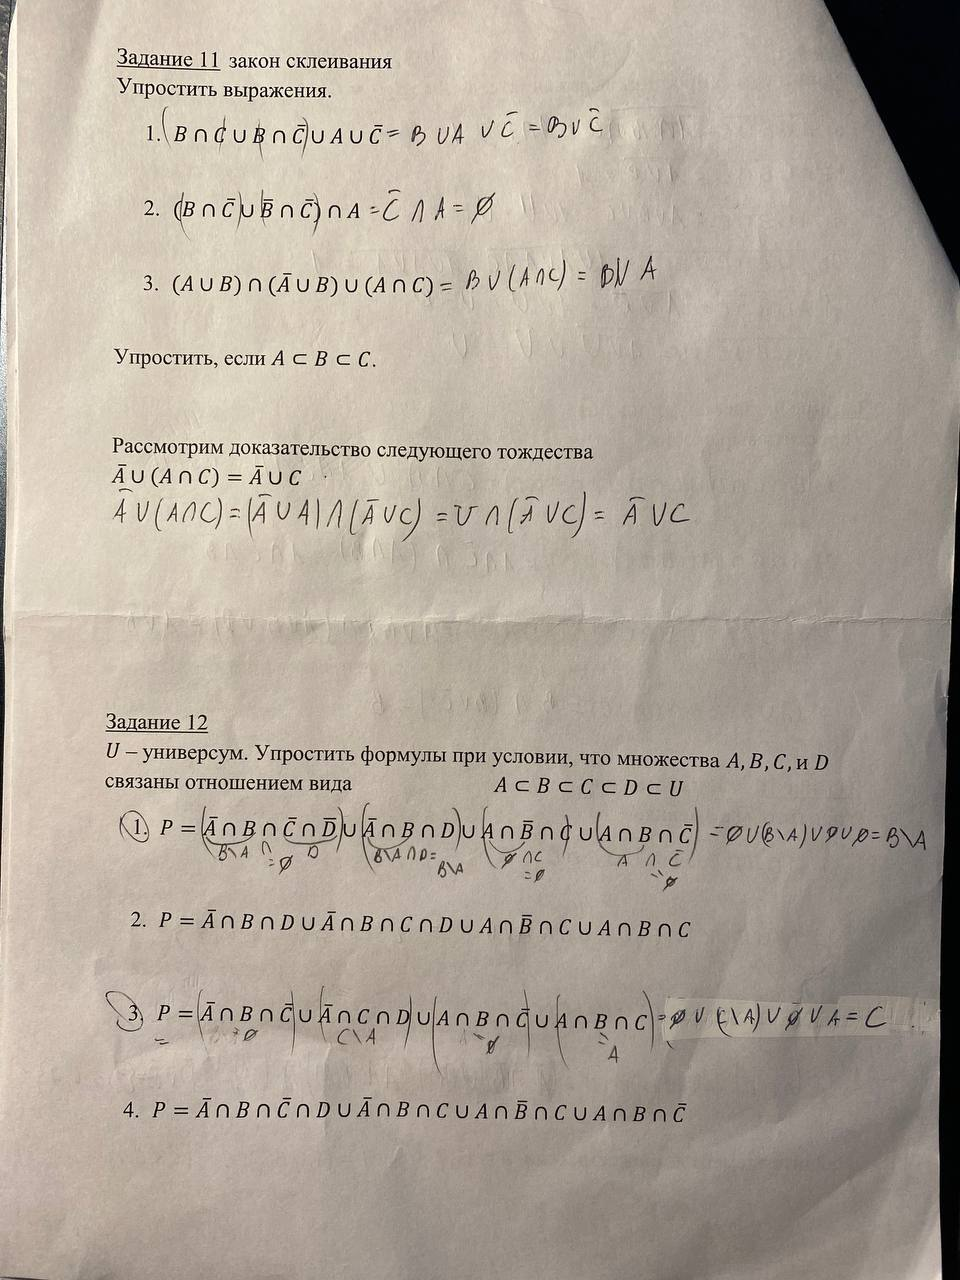 Задание 11 закон склеивания
Упростить выражения.
1. (B ∩ C ∪ B ∩ C̄) ∪ A ∪ C̄ = B ∪ A ∪ C̄ = B ∪ C̄
2. (B ∩ C̄) ∪ (B̄ ∩ C̄) ∩ A = C̄ ∩ A = ∅
3. (A ∪ B) ∩ (Ā ∪ B) ∪ (A ∩ C) = B ∪ (A ∩ C) = B ∪ A
Упростить, если A ⊂ B ⊂ C.
Рассмотрим доказательство следующего тождества
Ā ∪ (A ∩ C) = Ā ∪ C
Ā ∪ (A ∩ C) = (Ā ∪ A) ∩ (Ā ∪ C) = U ∩ (Ā ∪ C) = Ā ∪ C
Задание 12
U – универсум. Упростить формулы при условии, что множества A, B, C, и D
связаны отношением вида A ⊂ B ⊂ C ⊂ D ⊂ U
1. P = (Ā ∩ B ∩ C̄ ∩ D̄) ∪ (Ā ∩ B ∩ D) ∪ (A ∩ B̄ ∩ C ∪ (A ∩ B ∩ C̄) = ∅ ∪ (B\A) ∪ ∅ ∪ ∅ = B\A
B\A ∩ D̄ B\A ∩ D = ∅ ∩ C A ∩ C̄
= ∅ B\A = ∅ = ∅
2. P = Ā ∩ B ∩ D ∪ Ā ∩ B ∩ C ∩ D ∪ A ∩ B̄ ∩ C ∪ A ∩ B ∩ C
3. P = (Ā ∩ B ∩ C̄) ∪ (Ā ∩ C ∩ D) ∪ (A ∩ B ∩ C̄) ∪ (A ∩ B ∩ C) = ∅ ∪ (C\A) ∪ ∅ ∪ A = C
= ∅ C\A = ∅ = A
4. P = Ā ∩ B ∩ C̄ ∩ D ∪ Ā ∩ B ∩ C ∪ A ∩ B̄ ∩ C ∪ A ∩ B ∩ C̄